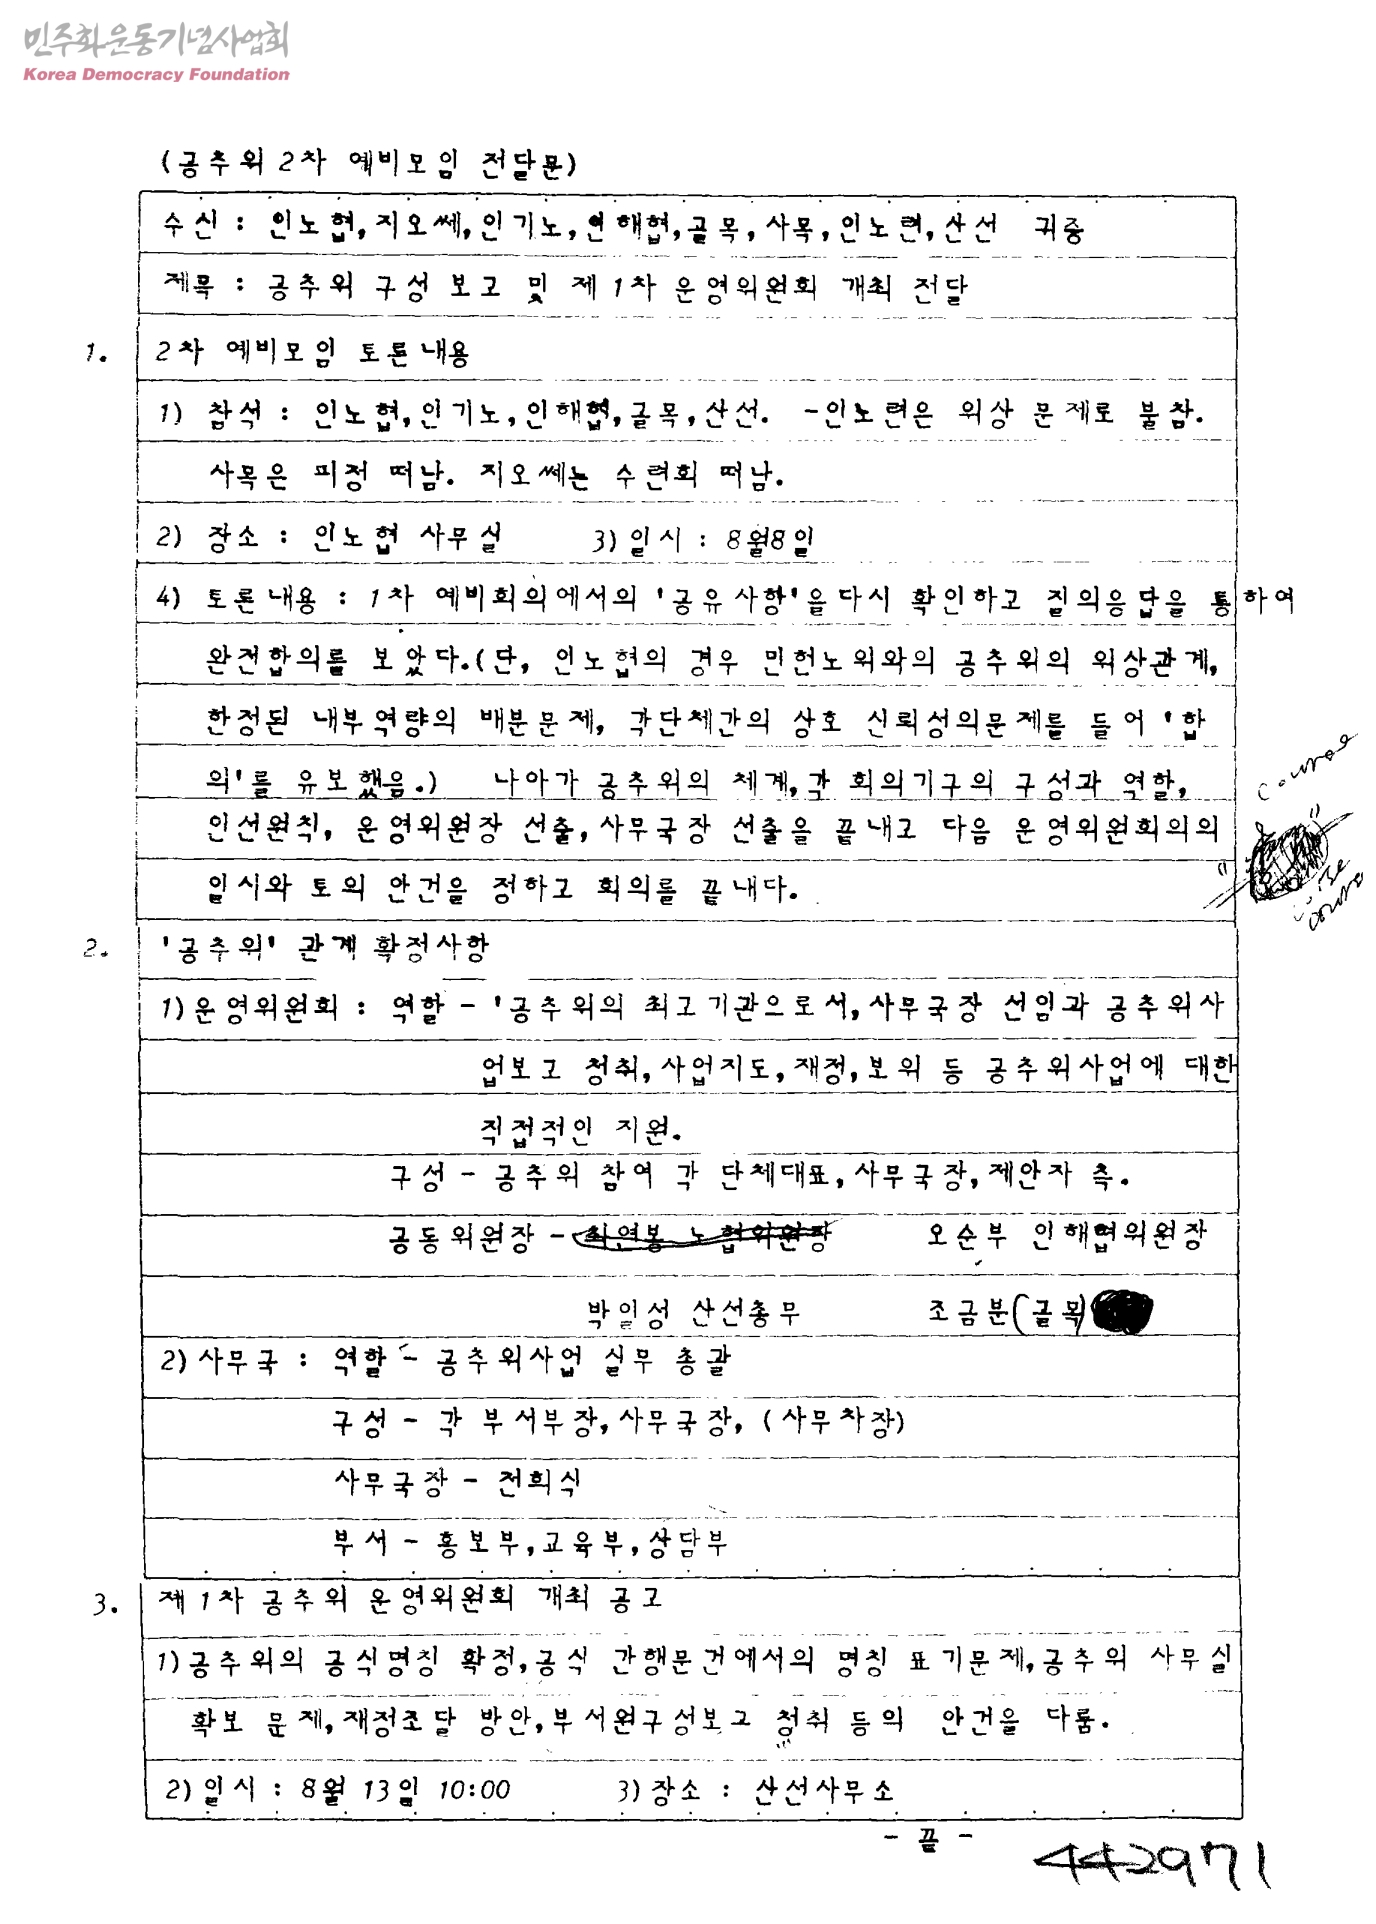 민주화운동기념사업회
Korea Democracy Foundation
(공추위 2차 예비모임 전달문)
수신 : 인노협,지오쎄,인기노,인해협,골목,사목,인노련,산선 귀중
제목 : 공추위 구성 보고 및 제 1차 운영위원회 개최 전달
1. 2차 예비모임 토론내용
1) 참석 : 인노협,인기노,인해협,골목,산선. -인노련은 위상 문제로 불참.
사목은 피정 떠남. 지오쎄는 수련회 떠남.
2) 장소 : 인노협 사무실 3) 일시 : 8월8일
4) 토론내용 : 1차 예비회의에서의 '공유사항'을다시 확인하고 질의응답을 통하여
완전합의를 보았다.(단, 인노협의 경우 민헌노위와의 공추위의 위상관계,
한정된 내부역량의 배분문제, 각단체간의 상호 신뢰성의문제를 들어 '합
의'를 유보했음.) 나아가 공추위의 체계,각 회의기구의 구성과 역할,
인선원칙, 운영위원장 선출,사무국장 선출을 끝내고 다음 운영위원회의의
일시와 토의 안건을 정하고 회의를 끝내다.
course
course
2. '공추위' 관계 확정사항
1)운영위원회 : 역할 - '공추위의 최고기관으로서,사무국장 선임과 공추위사
업보고 청취,사업지도,재정,보위 등 공추위사업에 대한
직접적인 지원.
구성 - 공추위 참여 각 단체대표,사무국장,제안자 측.
공동위원장 - 최연봉 노협위원장 오순부 인해협위원장
박일성 산선총무 조금분(골목)
2)사무국 : 역할 - 공추위사업 실무 총괄
구성 - 각 부서부장,사무국장, (사무차장)
사무국장 - 전희식
부서 - 홍보부,교육부,상담부
3. 제 1차 공추위 운영위원회 개최 공고
1)공추위의 공식명칭 확정,공식 간행문건에서의 명칭 표기문제,공추위 사무실
확보 문제,재정조달 방안,부서원구성보고 청취 등의 안건을 다룸.
2)일시 : 8월 13일 10:00 3)장소 : 산선사무소
- 끝 -
442971